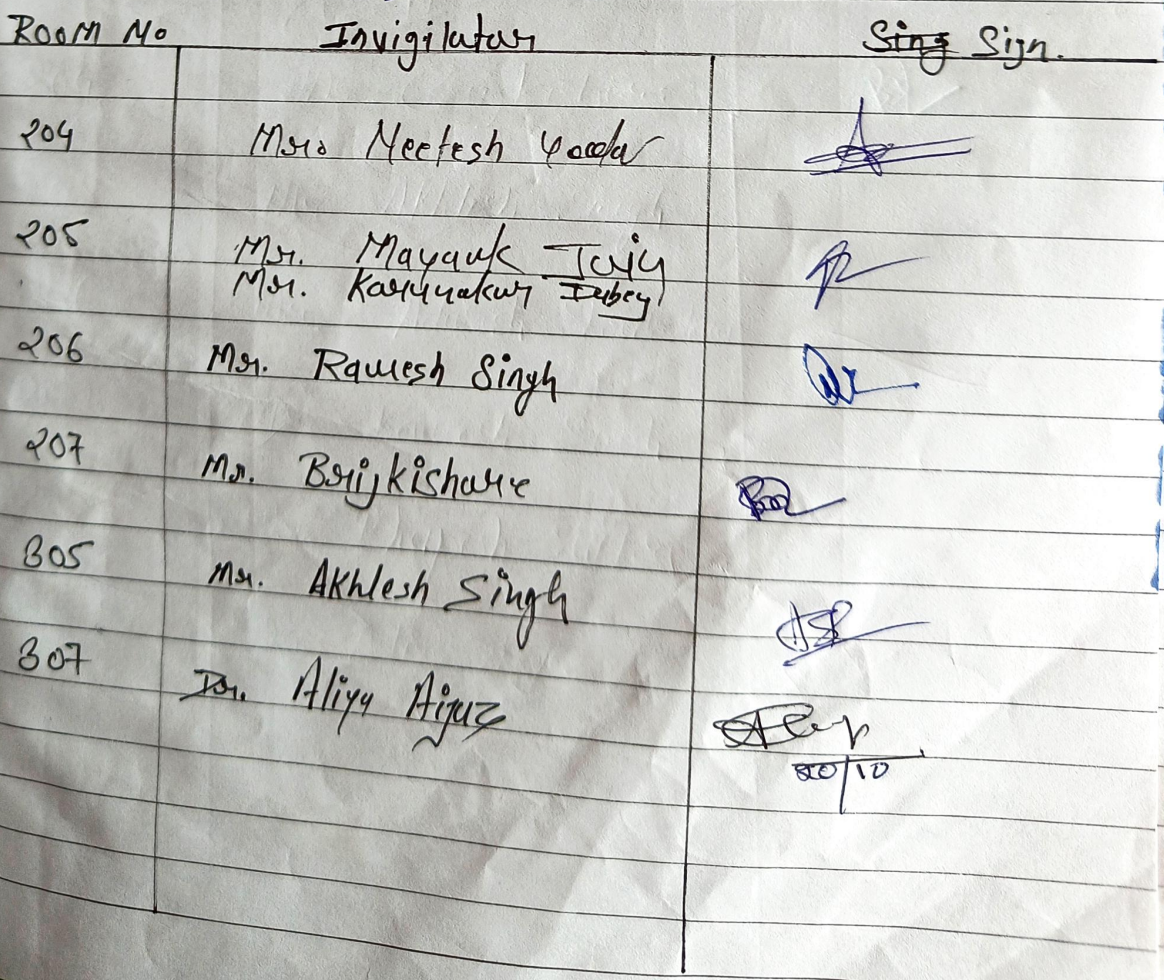 Room No Invigilator Sing Sign.
204 Mrs Neetesh
205 Mr. Mayank Jain
Mr. Karunakar Dubey
206 Mr. Ramesh Singh
207 Mr. Brijkishore
305 Mr. Akhlesh Singh
307 Dr. Aliya Aijaz
30/10